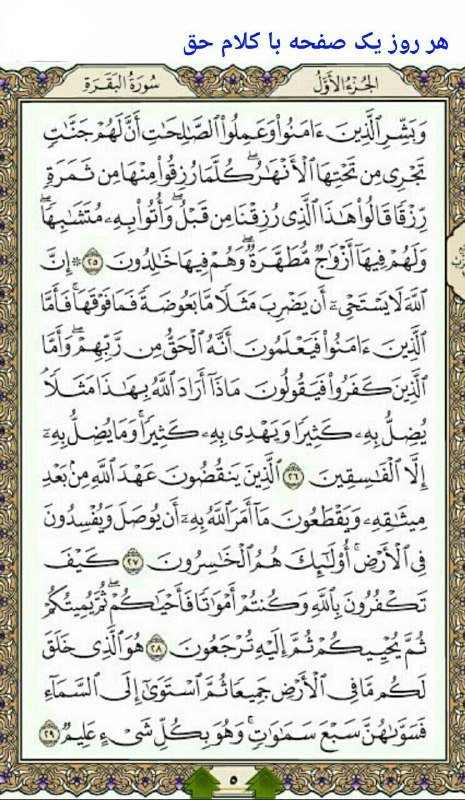 هر روز یک صفحه با کلام حق
الجُزْءُ الأَوَّلُ
سُورَةُ البَقَرَةِ
وَبَشِّرِ ٱلَّذِينَ ءَامَنُوا۟ وَعَمِلُوا۟ ٱلصَّٰلِحَٰتِ أَنَّ لَهُمْ جَنَّٰتٍ
تَجْرِى مِن تَحْتِهَا ٱلْأَنْهَٰرُ ۖ كُلَّمَا رُزِقُوا۟ مِنْهَا مِن ثَمَرَةٍ
رِّزْقًا قَالُوا۟ هَٰذَا ٱلَّذِى رُزِقْنَا مِن قَبْلُ ۖ وَأُتُوا۟ بِهِۦ مُتَشَٰبِهًا ۖ
وَلَهُمْ فِيهَآ أَزْوَٰجٌ مُّطَهَّرَةٌ ۖ وَهُمْ فِيهَا خَٰلِدُونَ ٢٥ ۞ إِنَّ
ٱللَّهَ لَا يَسْتَحْىِۦٓ أَن يَضْرِبَ مَثَلًا مَّا بَعُوضَةً فَمَا فَوْقَهَا ۚ فَأَمَّا
ٱلَّذِينَ ءَامَنُوا۟ فَيَعْلَمُونَ أَنَّهُ ٱلْحَقُّ مِن رَّبِّهِمْ ۖ وَأَمَّا
ٱلَّذِينَ كَفَرُوا۟ فَيَقُولُونَ مَاذَآ أَرَادَ ٱللَّهُ بِهَٰذَا مَثَلًا ۘ
يُضِلُّ بِهِۦ كَثِيرًا وَيَهْدِى بِهِۦ كَثِيرًا ۚ وَمَا يُضِلُّ بِهِۦٓ
إِلَّا ٱلْفَٰسِقِينَ ٢٦ ٱلَّذِينَ يَنقُضُونَ عَهْدَ ٱللَّهِ مِنۢ بَعْدِ
مِيثَٰقِهِۦ وَيَقْطَعُونَ مَآ أَمَرَ ٱللَّهُ بِهِۦٓ أَن يُوصَلَ وَيُفْسِدُونَ
فِى ٱلْأَرْضِ ۚ أُو۟لَٰٓئِكَ هُمُ ٱلْخَٰسِرُونَ ٢٧ كَيْفَ
تَكْفُرُونَ بِٱللَّهِ وَكُنتُمْ أَمْوَٰتًا فَأَحْيَٰكُمْ ۖ ثُمَّ يُمِيتُكُمْ
ثُمَّ يُحْيِيكُمْ ثُمَّ إِلَيْهِ تُرْجَعُونَ ٢٨ هُوَ ٱلَّذِى خَلَقَ
لَكُم مَّا فِى ٱلْأَرْضِ جَمِيعًا ثُمَّ ٱسْتَوَىٰٓ إِلَى ٱلسَّمَآءِ
فَسَوَّىٰهُنَّ سَبْعَ سَمَٰوَٰتٍ ۚ وَهُوَ بِكُلِّ شَىْءٍ عَلِيمٌ ٢٩
٥